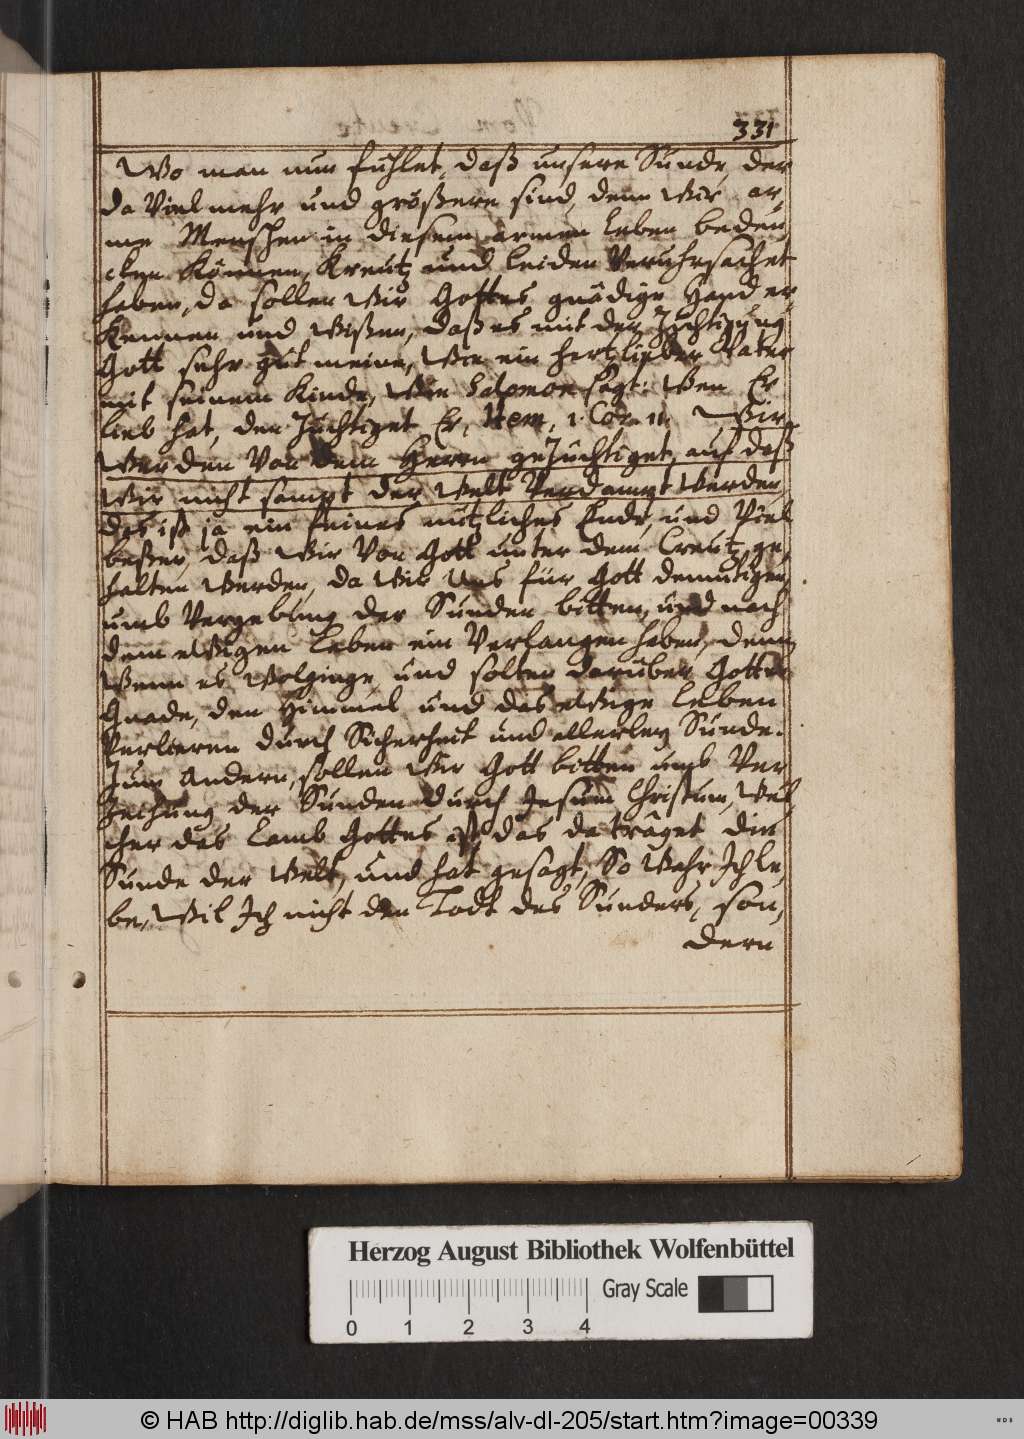 331
Wo man nun fühlet, daß unsere Sünde, der
da Viel mehr und größere sind, denn Wir ar,
me Menschen in diesem armen leben beden
cken Können, Kreutz und leiden Veruhrsachet
haben, da sollen Wir Gottes gnädige Hand er,
Kennen und Wißen, daß es mit der Züchtigung
Gott sehr gut meine, Wie ein hertzlieber Vater
mit seinem Kinde, Wie Salomon sagt: Wen Er
lieb hat, den Züchtiget Er, Item, 1. Cor. 11. Wir
Werden Von dem Herrn geZüchtiget, auf daß
Wir nicht sampt der Welt Verdampt Werden,
das ist ja ein feines nützliches Ende, und Viel
beßer, daß Wir Von Gott unter dem Creutz ge,
halten Werden, da Wir Uns für Gott demütigen,
umb Vergebung der Sünden bitten, und nach
dem eWigen leben ein Verlangen haben, denn
Wenn es Wolginge, und solten darüber Gottes
Gnade, den Himmel und das eWige leben
Verlieren durch Sicherheit und allerley Sünde.
Zum Andern, sollen Wir Gott bitten umb Ver
Zeihung der Sünden durch Jesum Christum, Wel,
cher das lamb Gottes ist, das da träget die
Sünde der Welt, und hat gesagt, So Wahr Ich le,
be, Wil Ich nicht den Todt des Sünders, son,
dern
Herzog August Bibliothek Wolfenbüttel
Gray Scale
0 1 2 3 4
© HAB http://diglib.hab.de/mss/alv-dl-205/start.htm?image=00339